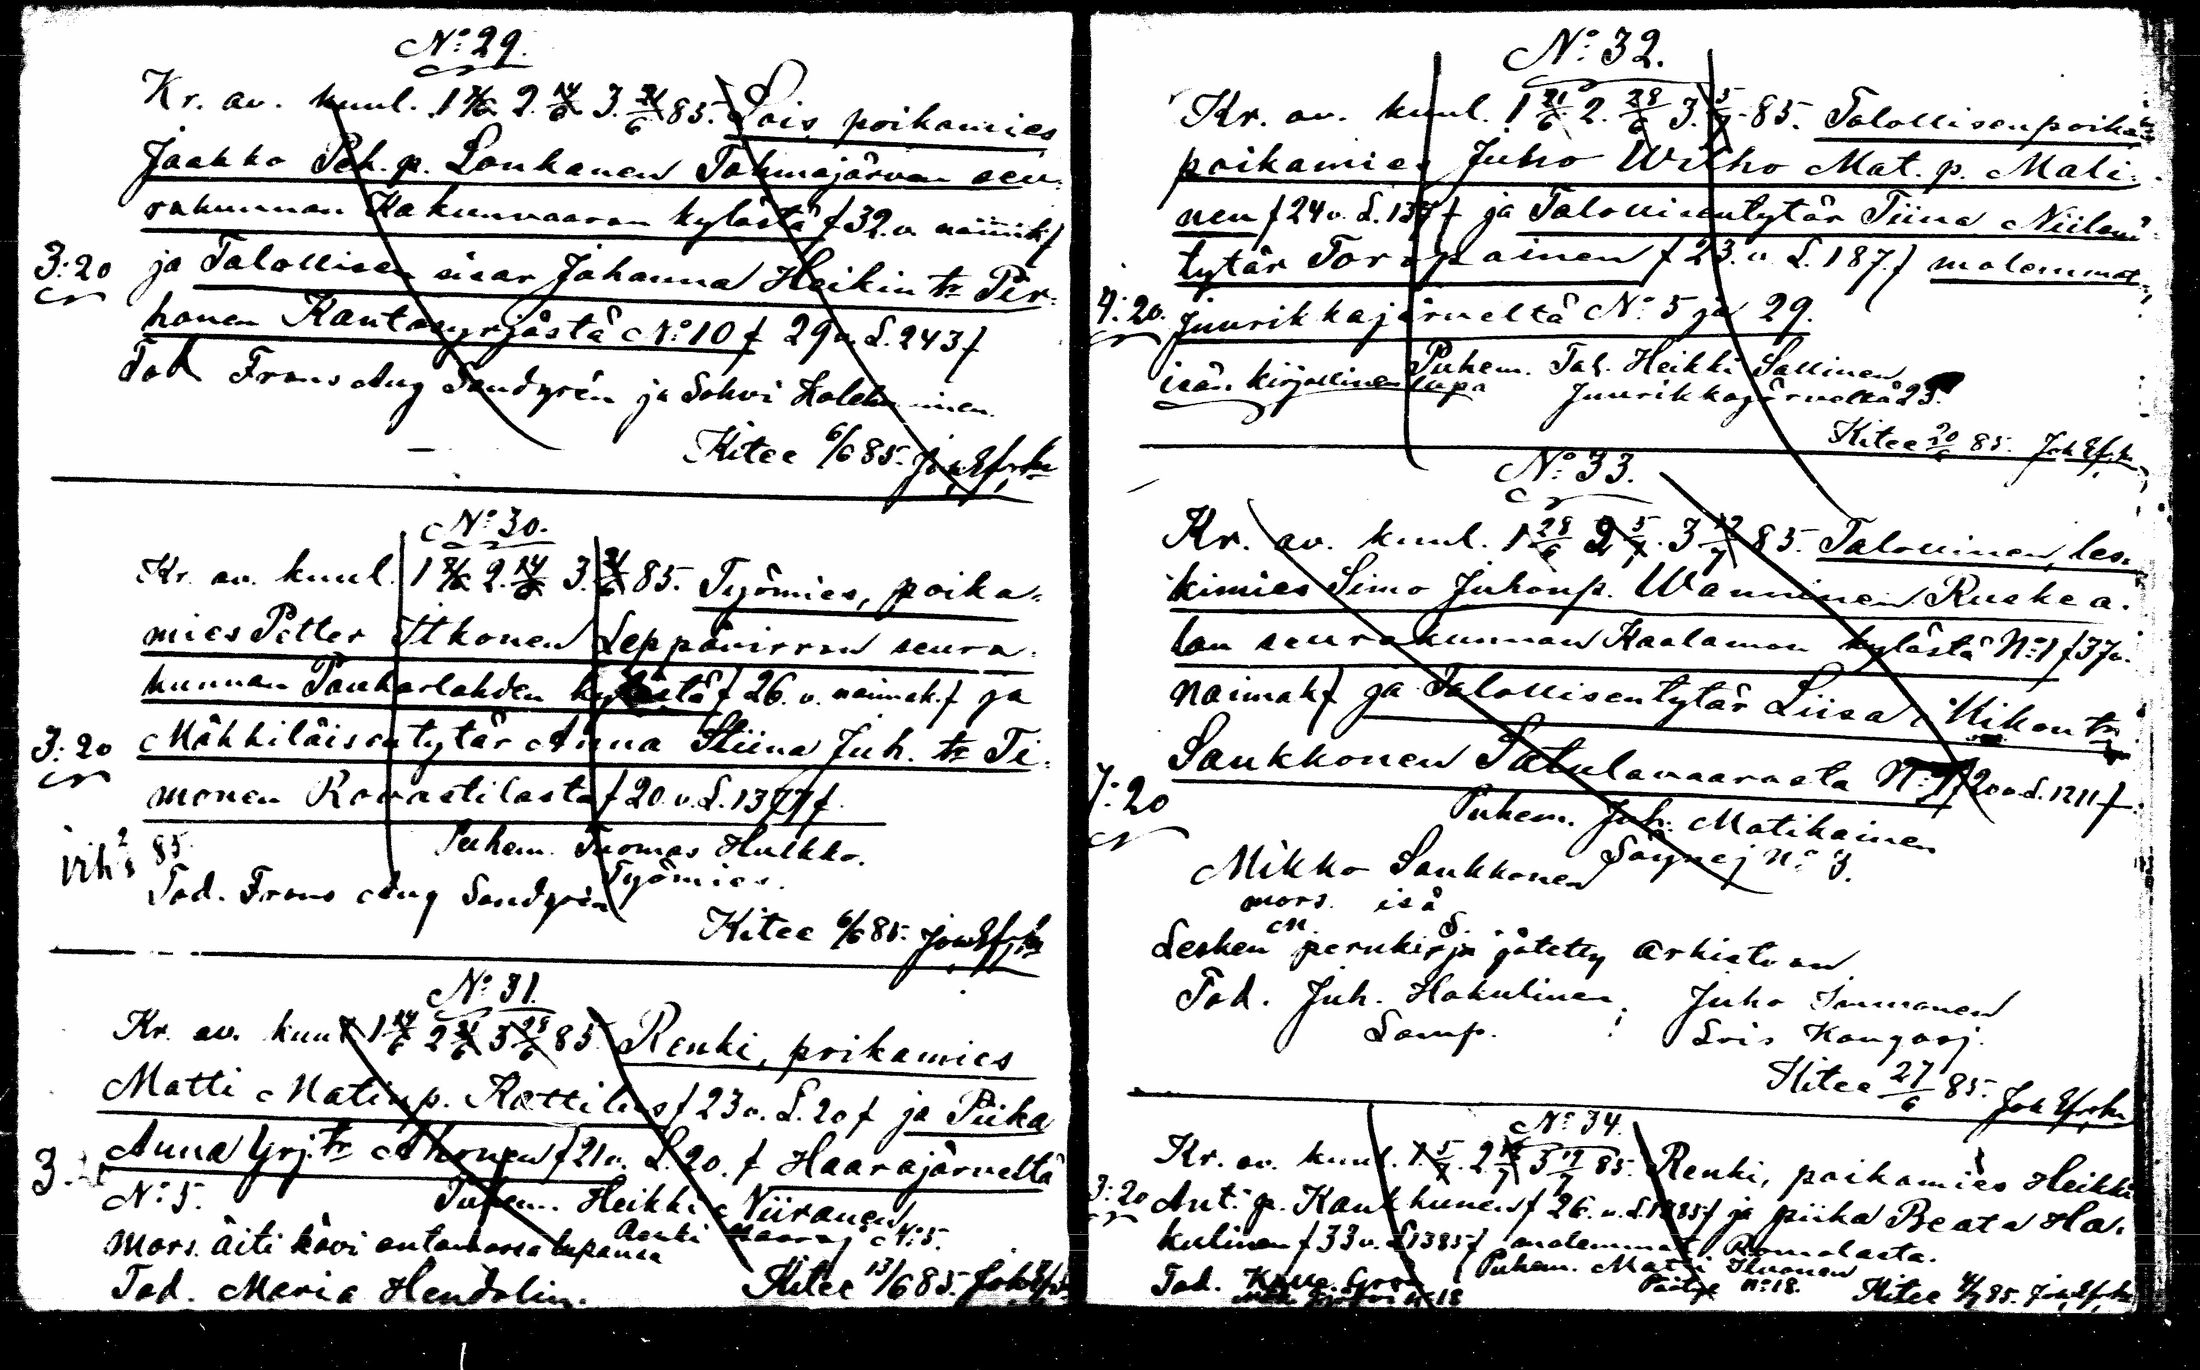 No: 29.
Kr. av. kuul. 1 7/6 2. 14/6 3. 21/6 85. Lois poikamies
Jaakko Pek. p. Loukanen Tohmajärven seu-
rakunnan Kakunvaaran kylästä f 32. v. naimk f
3:20 ja Talollisen sisar Johanna Heikin tr Pir-
honen Kantosyrjästä No: 10 f 29 v. L. 243 f
Tod Frans Aug Sandgrén ja Sohvi Holehmainen
Kitee 6/6 85.
No: 30.
Kr. av. kuul. 1 7/6 2. 14/6 3. 21/6 85. Työmies, poika-
mies Petter Itkonen Leppävirran seura-
kunnan Paukarlahden kylästä f 26. v. naimak. f ja
3:20 Mäkkiläisentytär Anna Stiina Juh. tr Ti-
monen Rovastilasta f 20. v. L. 1377 f.
Puhem. Tuomas Hulkko.
85.
Työmies.
Tod. Frans Aug Sandgrén
Kitee 6/6 85.
No: 31.
Kr. av. kuul 1 14/6 2 21/6 3 28/6 85. Renki, poikamies
Matti Matinp. Rottilus f 23 v. L. 20 f ja Piika
Anna Yrj. tr Ahonen f 21 v. L. 20. f Haarajärveltä
No: 5. Puhem. Heikki Niiranen
Renki Haaraj No: 5.
Mors. äiti kävi antamassa lupansa
Tod. Maria Hendolin.
Kitee 13/6 85.
No: 32.
Kr. av. kuul. 1 21/6 2. 28/6 3. 5/7 85. Talollisenpoika
poikamies Juho Wilho Mat. p. Mali-
nen f 24 v. L. 137 f ja Talollisentytär Tiina Niilon
tytär Torppainen f 23. v. L. 187. f molemmat
4:20. Juurikkajärveltä No: 5 ja 29.
Puhem. Tal. Heikki Sallinen
isän kirjallinen lupa Juurikkajärveltä 23.
Kitee 20/6 85.
No: 33.
Kr. av. kuul. 1 28/6 2 5/7. 3 12/7 85. Talollinen, les-
kimies Simo Juhonp. Wanninen Ruskea-
lan seurakunnan Kaalamon kylästä No: 1 f 37 v.
naimak f ja Talollisentytär Liisa Mikon tr
Saukkonen Satulavaarasta No: f 20 v. L. 1211 f.
7:20 Puhem. Juh. Matikainen
No: 3.
Mikko Saukkonen
mors. isä
Lesken perukirja jätetty arkistoon
Tod. Juh. Hakulinen, Juho Immonen
Lamp. ; Lois Kangasj.
Kitee 27/6 85.
No: 34.
Kr. av. kuul. 1. 5/7. 2 3 85. Renki, poikamies Heikki
3:20 Ant. p. Kaukhunen f 26. v. L. 1385 f ja piika Beata Ha-
kulinen f 33 v. L 1385 f molemmat Romolasta.
Puhem. Matti
No: 18.
Tod.
Kitee 4/7 85.